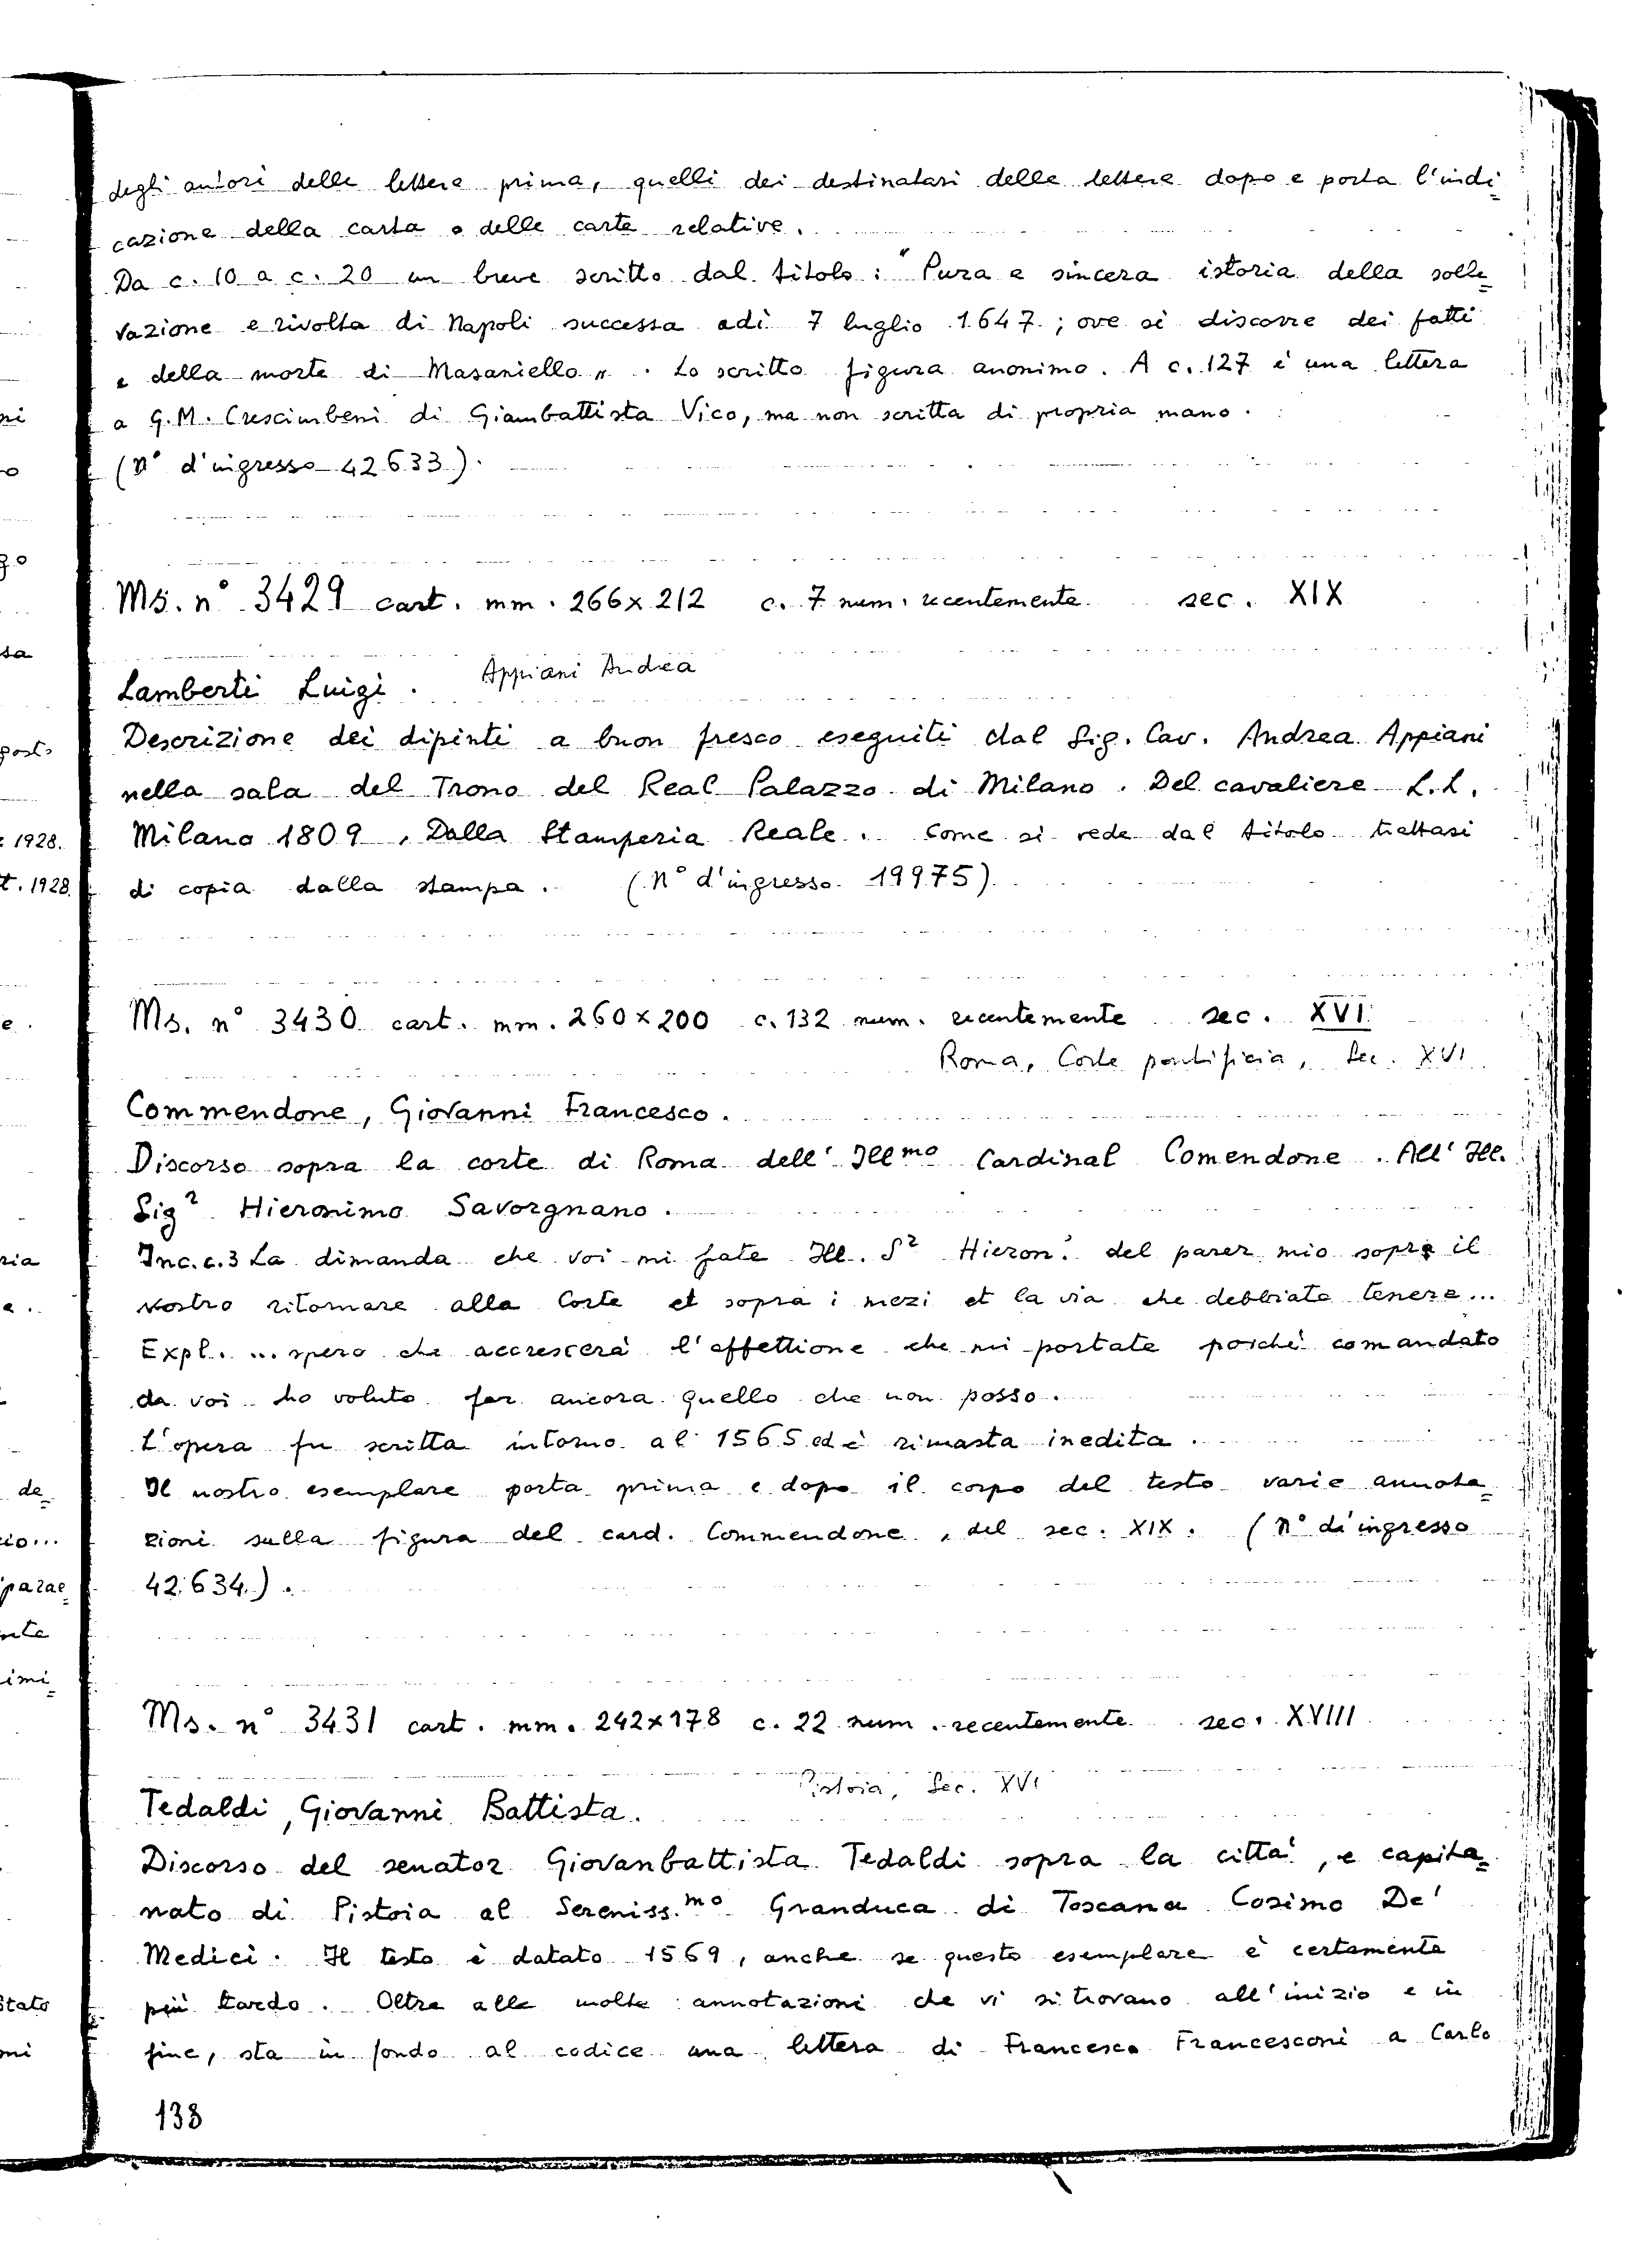 degli autori delle lettere prima, quelli dei destinatari delle lettere dopo e porta l'indi=
cazione della carta o delle carte relative.
Da c. 10 a c. 20 un breve scritto dal titolo: "Pura e sincera istoria della solle=
vazione e rivolta di Napoli successa adì 7 luglio 1647; ove si discorre dei fatti
e della morte di Masaniello". Lo scritto figura anonimo. A c. 127 è una lettera
a G.M. Crescimbeni di Giambattista Vico, ma non scritta di propria mano.
(N° d'ingresso 42633).
Ms. n° 3429 cart. mm. 266x212 c. 7 num. recentemente sec. XIX
Lamberti Luigi. Appiani Andrea
Descrizione dei dipinti a buon fresco eseguiti dal Sig. Cav. Andrea Appiani
nella sala del Trono del Real Palazzo di Milano. Del cavaliere L.L.
Milano 1809, Dalla Stamperia Reale. Come si vede dal titolo trattasi
di copia dalla stampa. (N° d'ingresso 19975)
Ms. n° 3430 cart. mm. 260x200 c. 132 num. recentemente sec. XVI
Roma, Corte pontificia, Sec. XVI
Commendone, Giovanni Francesco.
Discorso sopra la corte di Roma dell' Ill.mo Cardinal Comendone. All' Ill.
Sig.r Hieronimo Savorgnano.
Inc. c. 3 La dimanda che voi mi fate Ill. S.r Hieron.° del parer mio sopra il
vostro ritornare alla Corte et sopra i mezi et la via che debbiate tenere...
Expl. ... spero che accrescerà l'affettione che mi portate poiché comandato
da voi ho voluto far ancora quello che non posso.
L'opera fu scritta intorno al 1565 ed è rimasta inedita.
Il nostro esemplare porta prima e dopo il corpo del testo varie annota=
zioni sulla figura del card. Commendone, del sec. XIX. (N° di ingresso
42634).
Ms. n° 3431 cart. mm. 242x178 c. 22 num. recentemente sec. XVIII
Pistoia, Sec. XVI
Tedaldi, Giovanni Battista.
Discorso del senator Giovanbattista Tedaldi sopra la città, e capita=
nato di Pistoia al Sereniss.mo Granduca di Toscana Cosimo De'
Medici. Il testo è datato 1569, anche se questo esemplare è certamente
più tardo. Oltre alle molte annotazioni che vi si trovano all'inizio e in
fine, sta in fondo al codice una lettera di Francesco Francesconi a Carlo
138